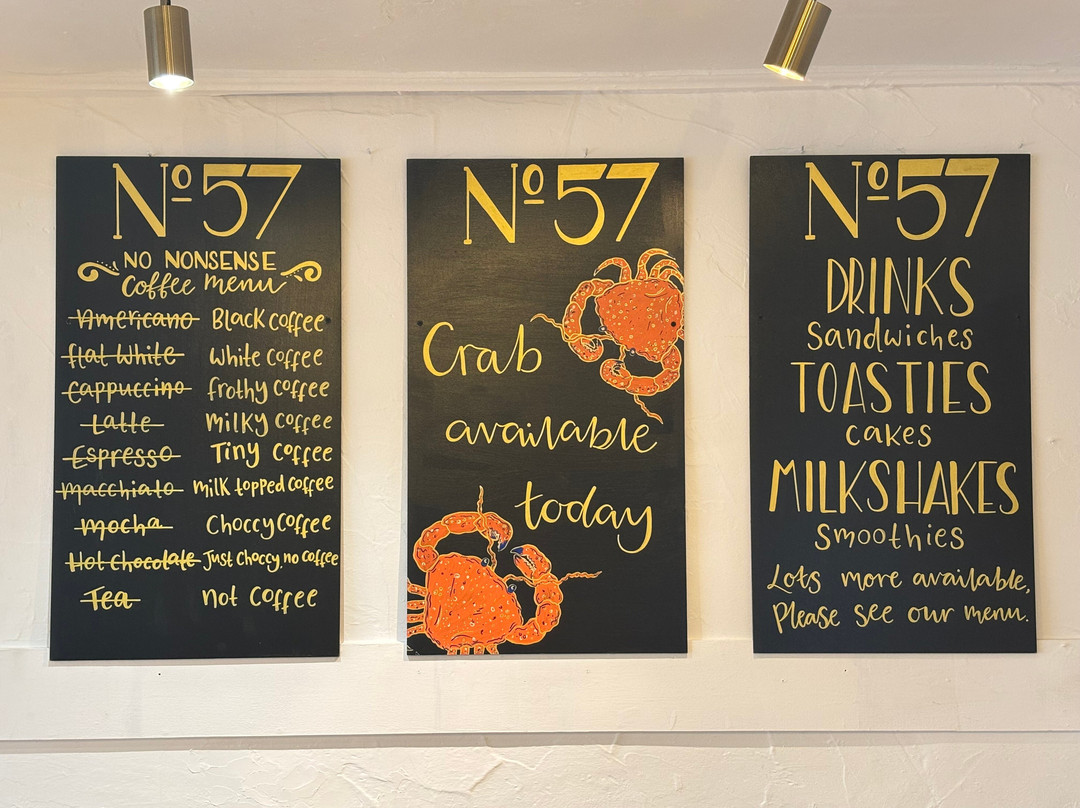 Nº57
NO NONSENSE
Coffee menu
Americano Black coffee
flat white white coffee
cappuccino frothy coffee
Latte milky coffee
Espresso Tiny coffee
macchiato milk topped coffee
mocha Choccy coffee
Hot chocolate Just Choccy, no coffee
Tea not coffee
Nº57
Crab
available
today
Nº57
DRINKS
Sandwiches
TOASTIES
cakes
MILKSHAKES
Smoothies
Lots more available,
Please see our menu.